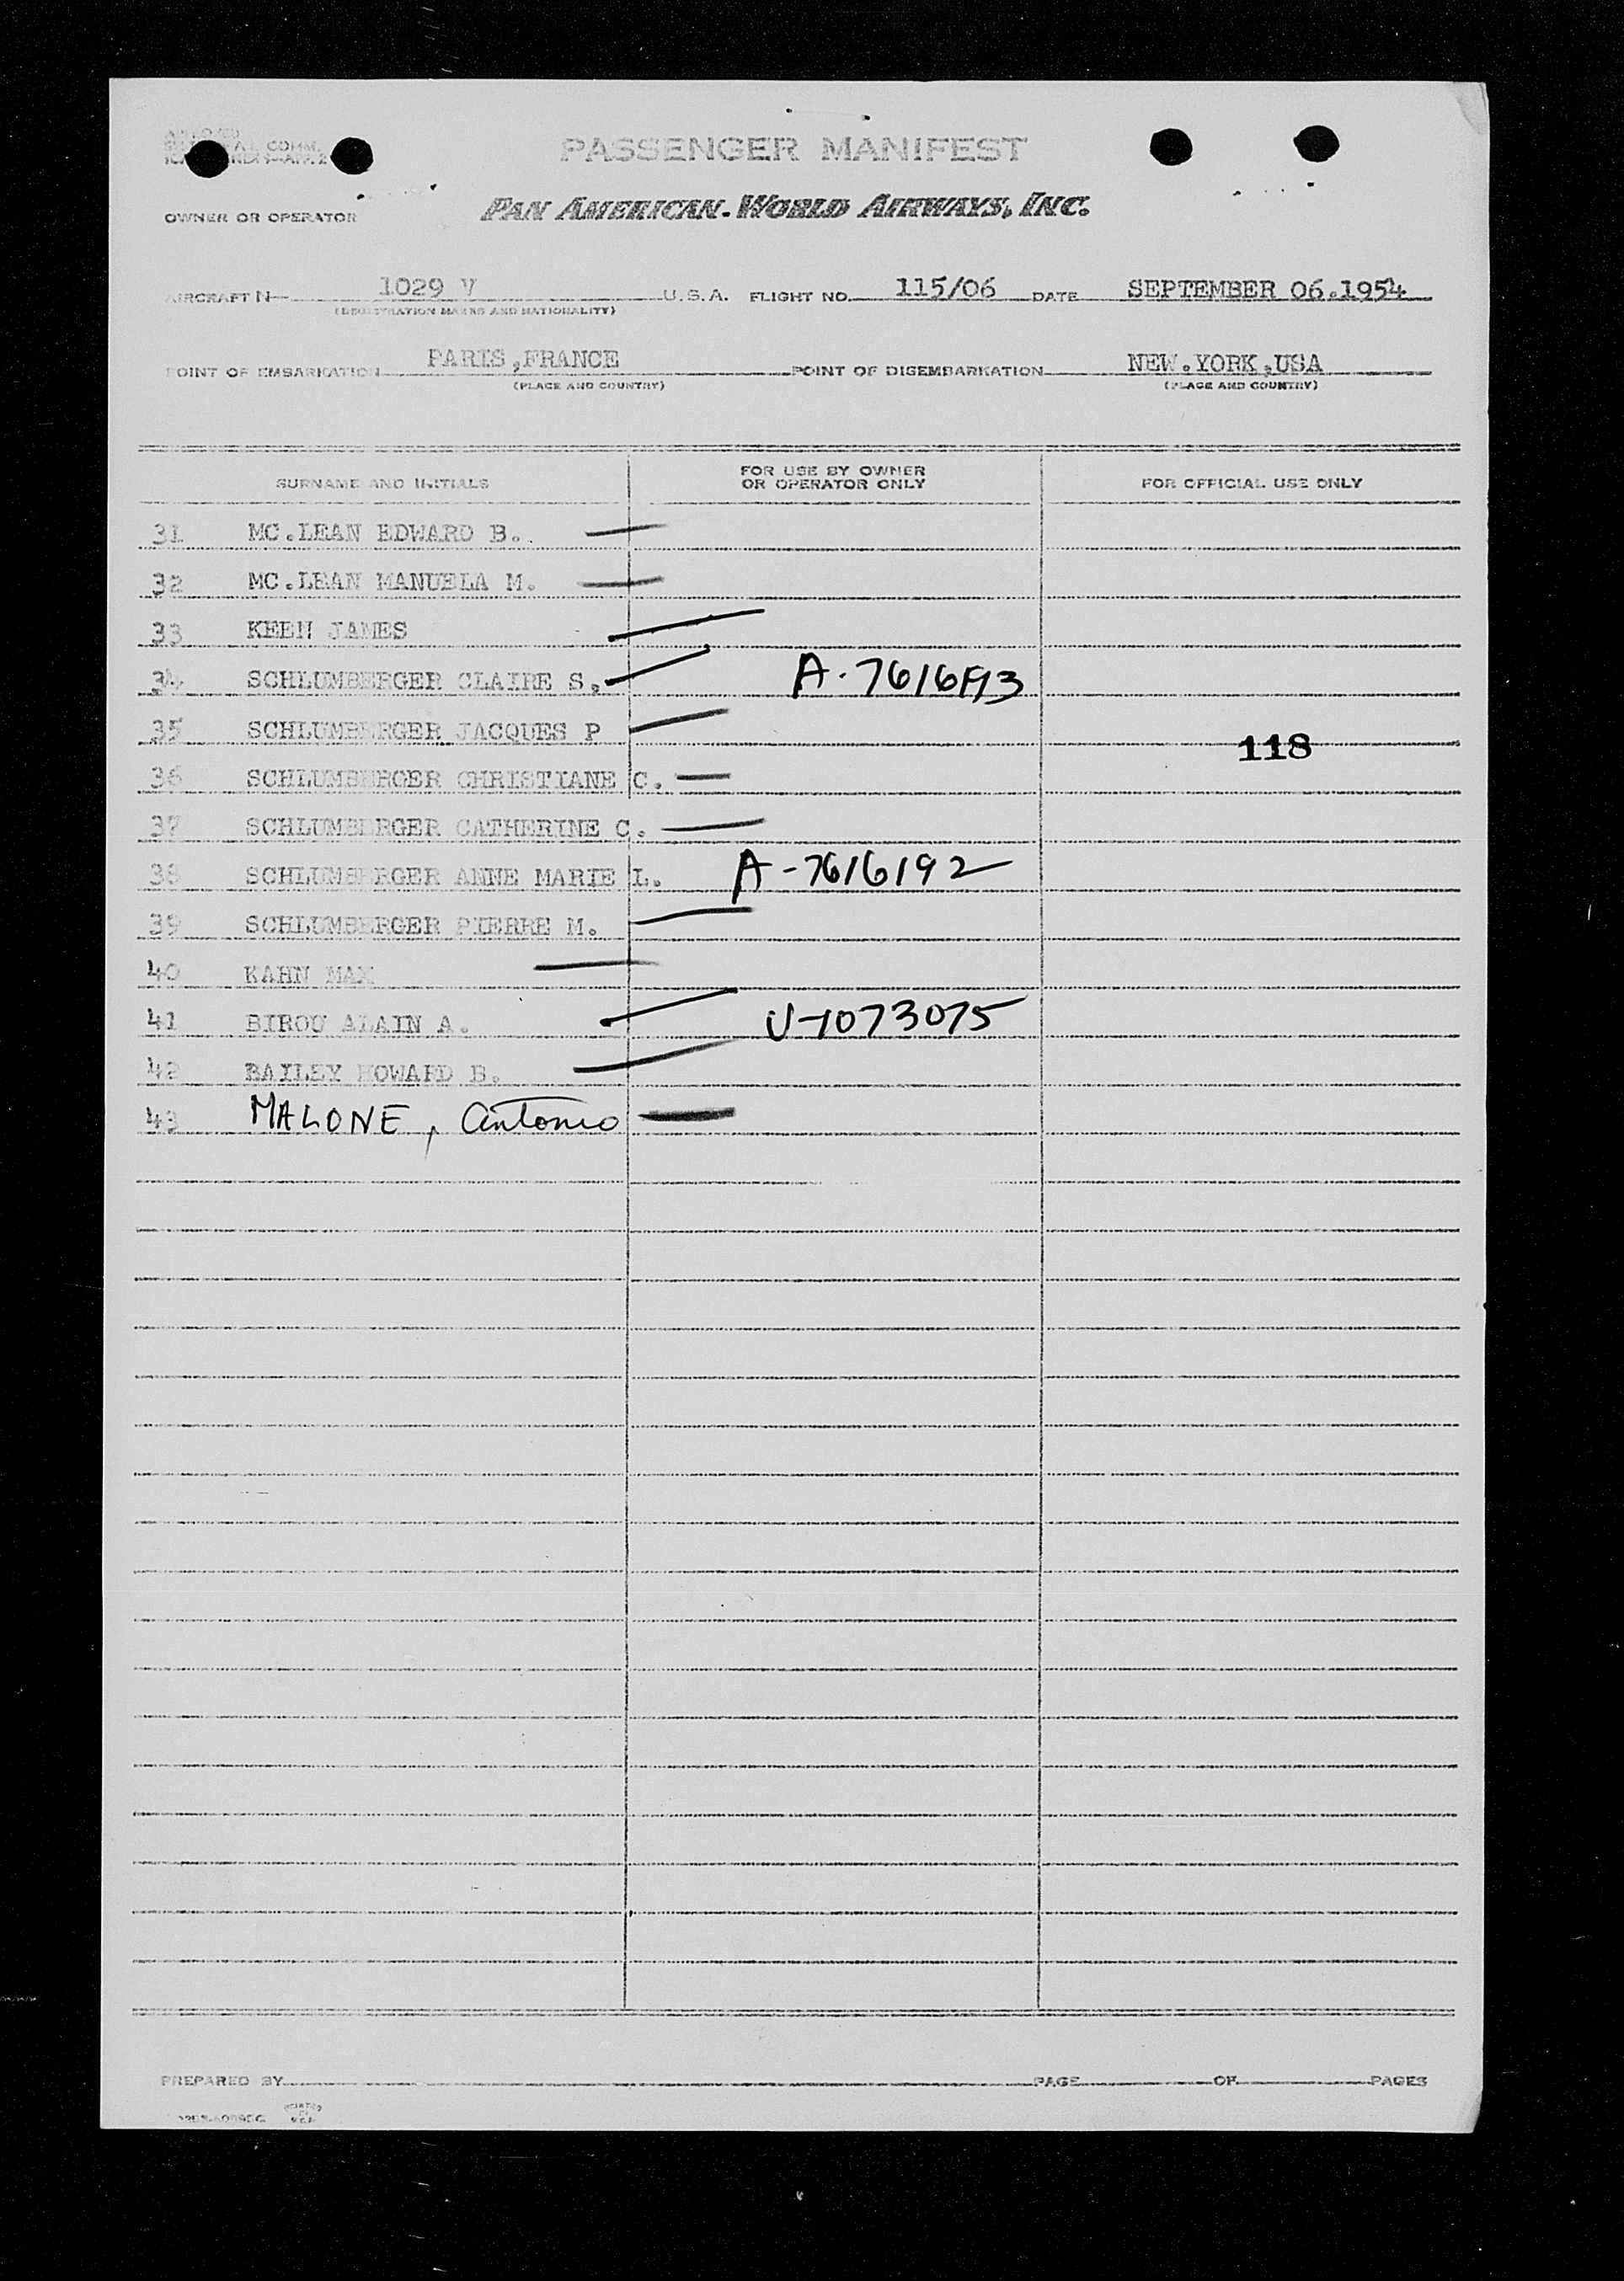 PASSENGER MANIFEST
COMM.
OWNER OR OPERATOR PAN AMERICAN WORLD AIRWAYS, INC.
AIRCRAFT N 1029 V U.S.A. FLIGHT NO. 115/06 DATE SEPTEMBER 06.1954
(REGISTRATION MARKS AND NATIONALITY)
POINT OF EMBARKATION PARIS,FRANCE POINT OF DISEMBARKATION NEW.YORK,USA
(PLACE AND COUNTRY) (PLACE AND COUNTRY)
SURNAME AND INITIALS FOR USE BY OWNER OR OPERATOR ONLY FOR OFFICIAL USE ONLY
31 MC.LEAN EDWARD B.
32 MC.LEAN MANUELA M.
33 KEEN JAMES
34 SCHLUMBERGER CLAIRE S. A-7616193
35 SCHLUMBERGER JACQUES P
118
36 SCHLUMBERGER CHRISTIANE C.
37 SCHLUMBERGER CATHERINE C.
38 SCHLUMBERGER ANNE MARIE L. A-7616192
39 SCHLUMBERGER PIERRE M.
40 KAHN MAX
41 BIROU ALAIN A. V-1073075
42 BAILEY HOWARD B.
43 MALONE, Antonio
PREPARED BY PAGE OF PAGES